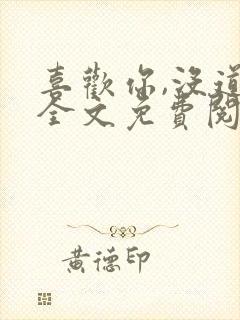 喜歡你,沒道
全文免費閱
黃德印